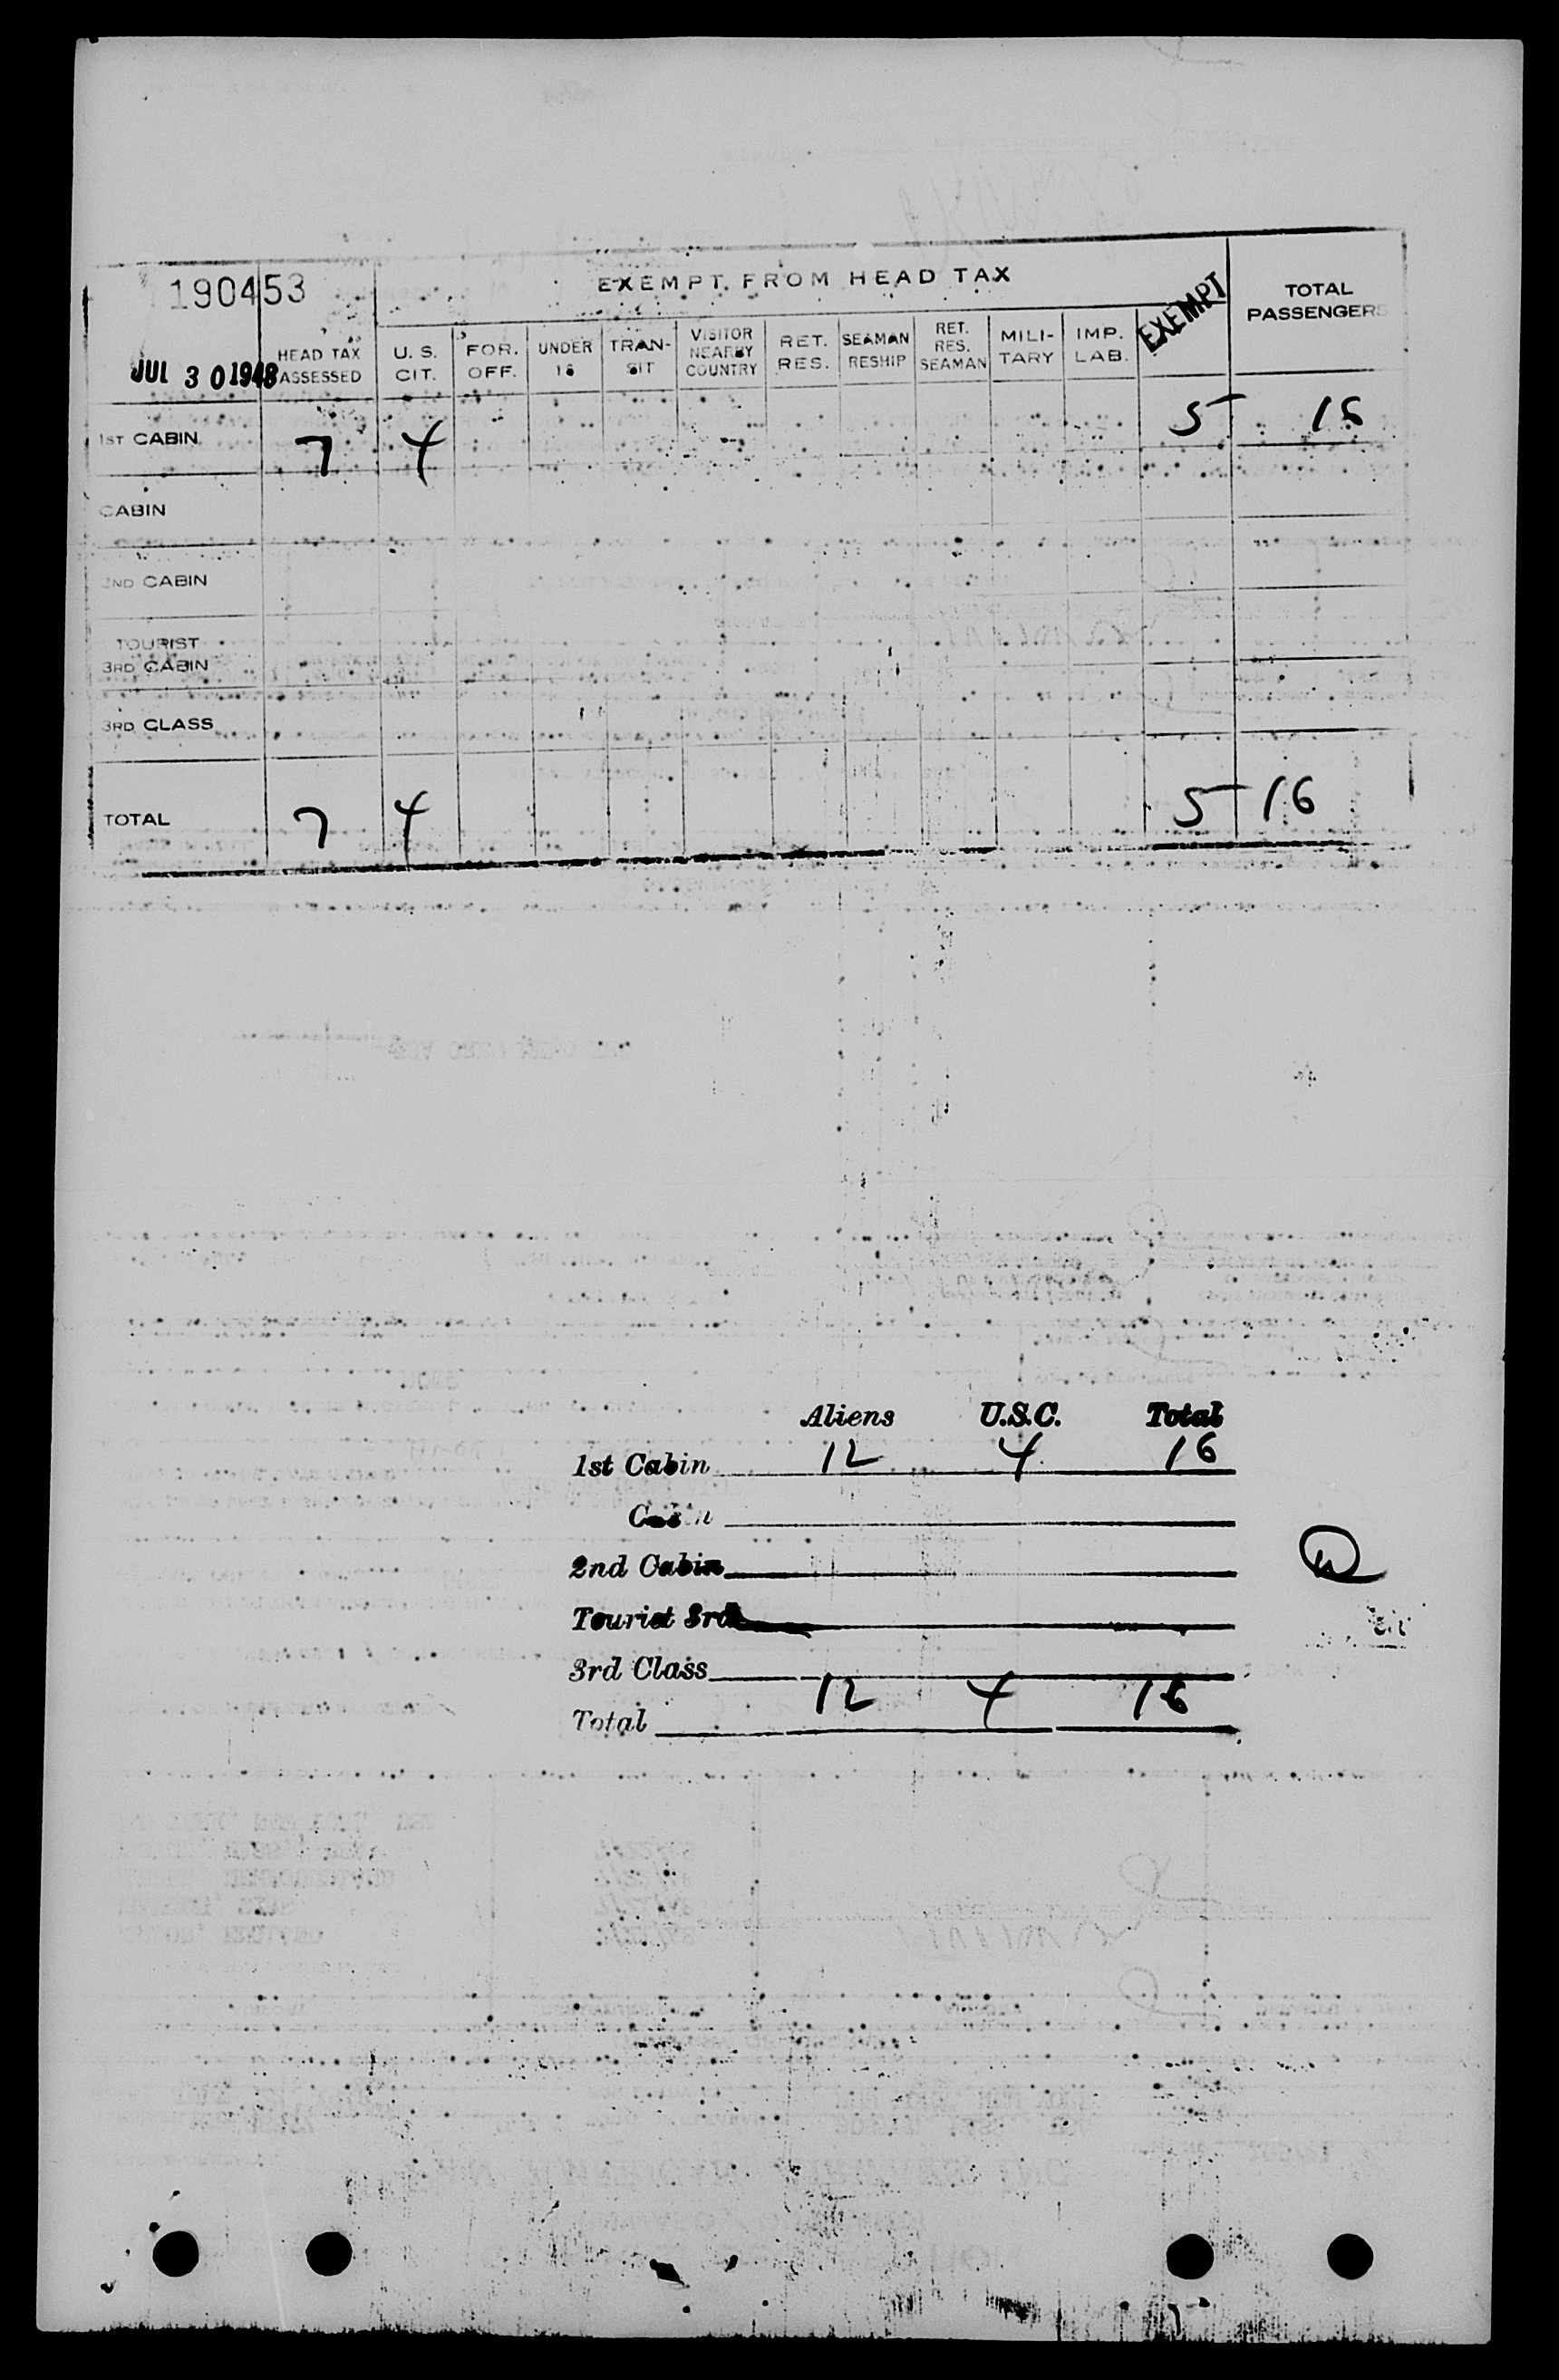 190453
EXEMPT FROM HEAD TAX
TOTAL PASSENGERS
JUL 30 1948
HEAD TAX ASSESSED
U. S. CIT.
FOR. OFF.
UNDER 16
TRAN-SIT
VISITOR NEARBY COUNTRY
RET. RES.
SEAMAN RESHIP
RET. RES. SEAMAN
MILI-TARY
IMP. LAB.
EXEMPT
1ST CABIN 7 4 5 16
CABIN
2ND CABIN
TOURIST
3RD CABIN
3RD CLASS
TOTAL 7 4 5 16
Aliens U.S.C. Total
1st Cabin 12 4 16
Cabin
2nd Cabin
Tourist 3rd
3rd Class
Total 12 4 16